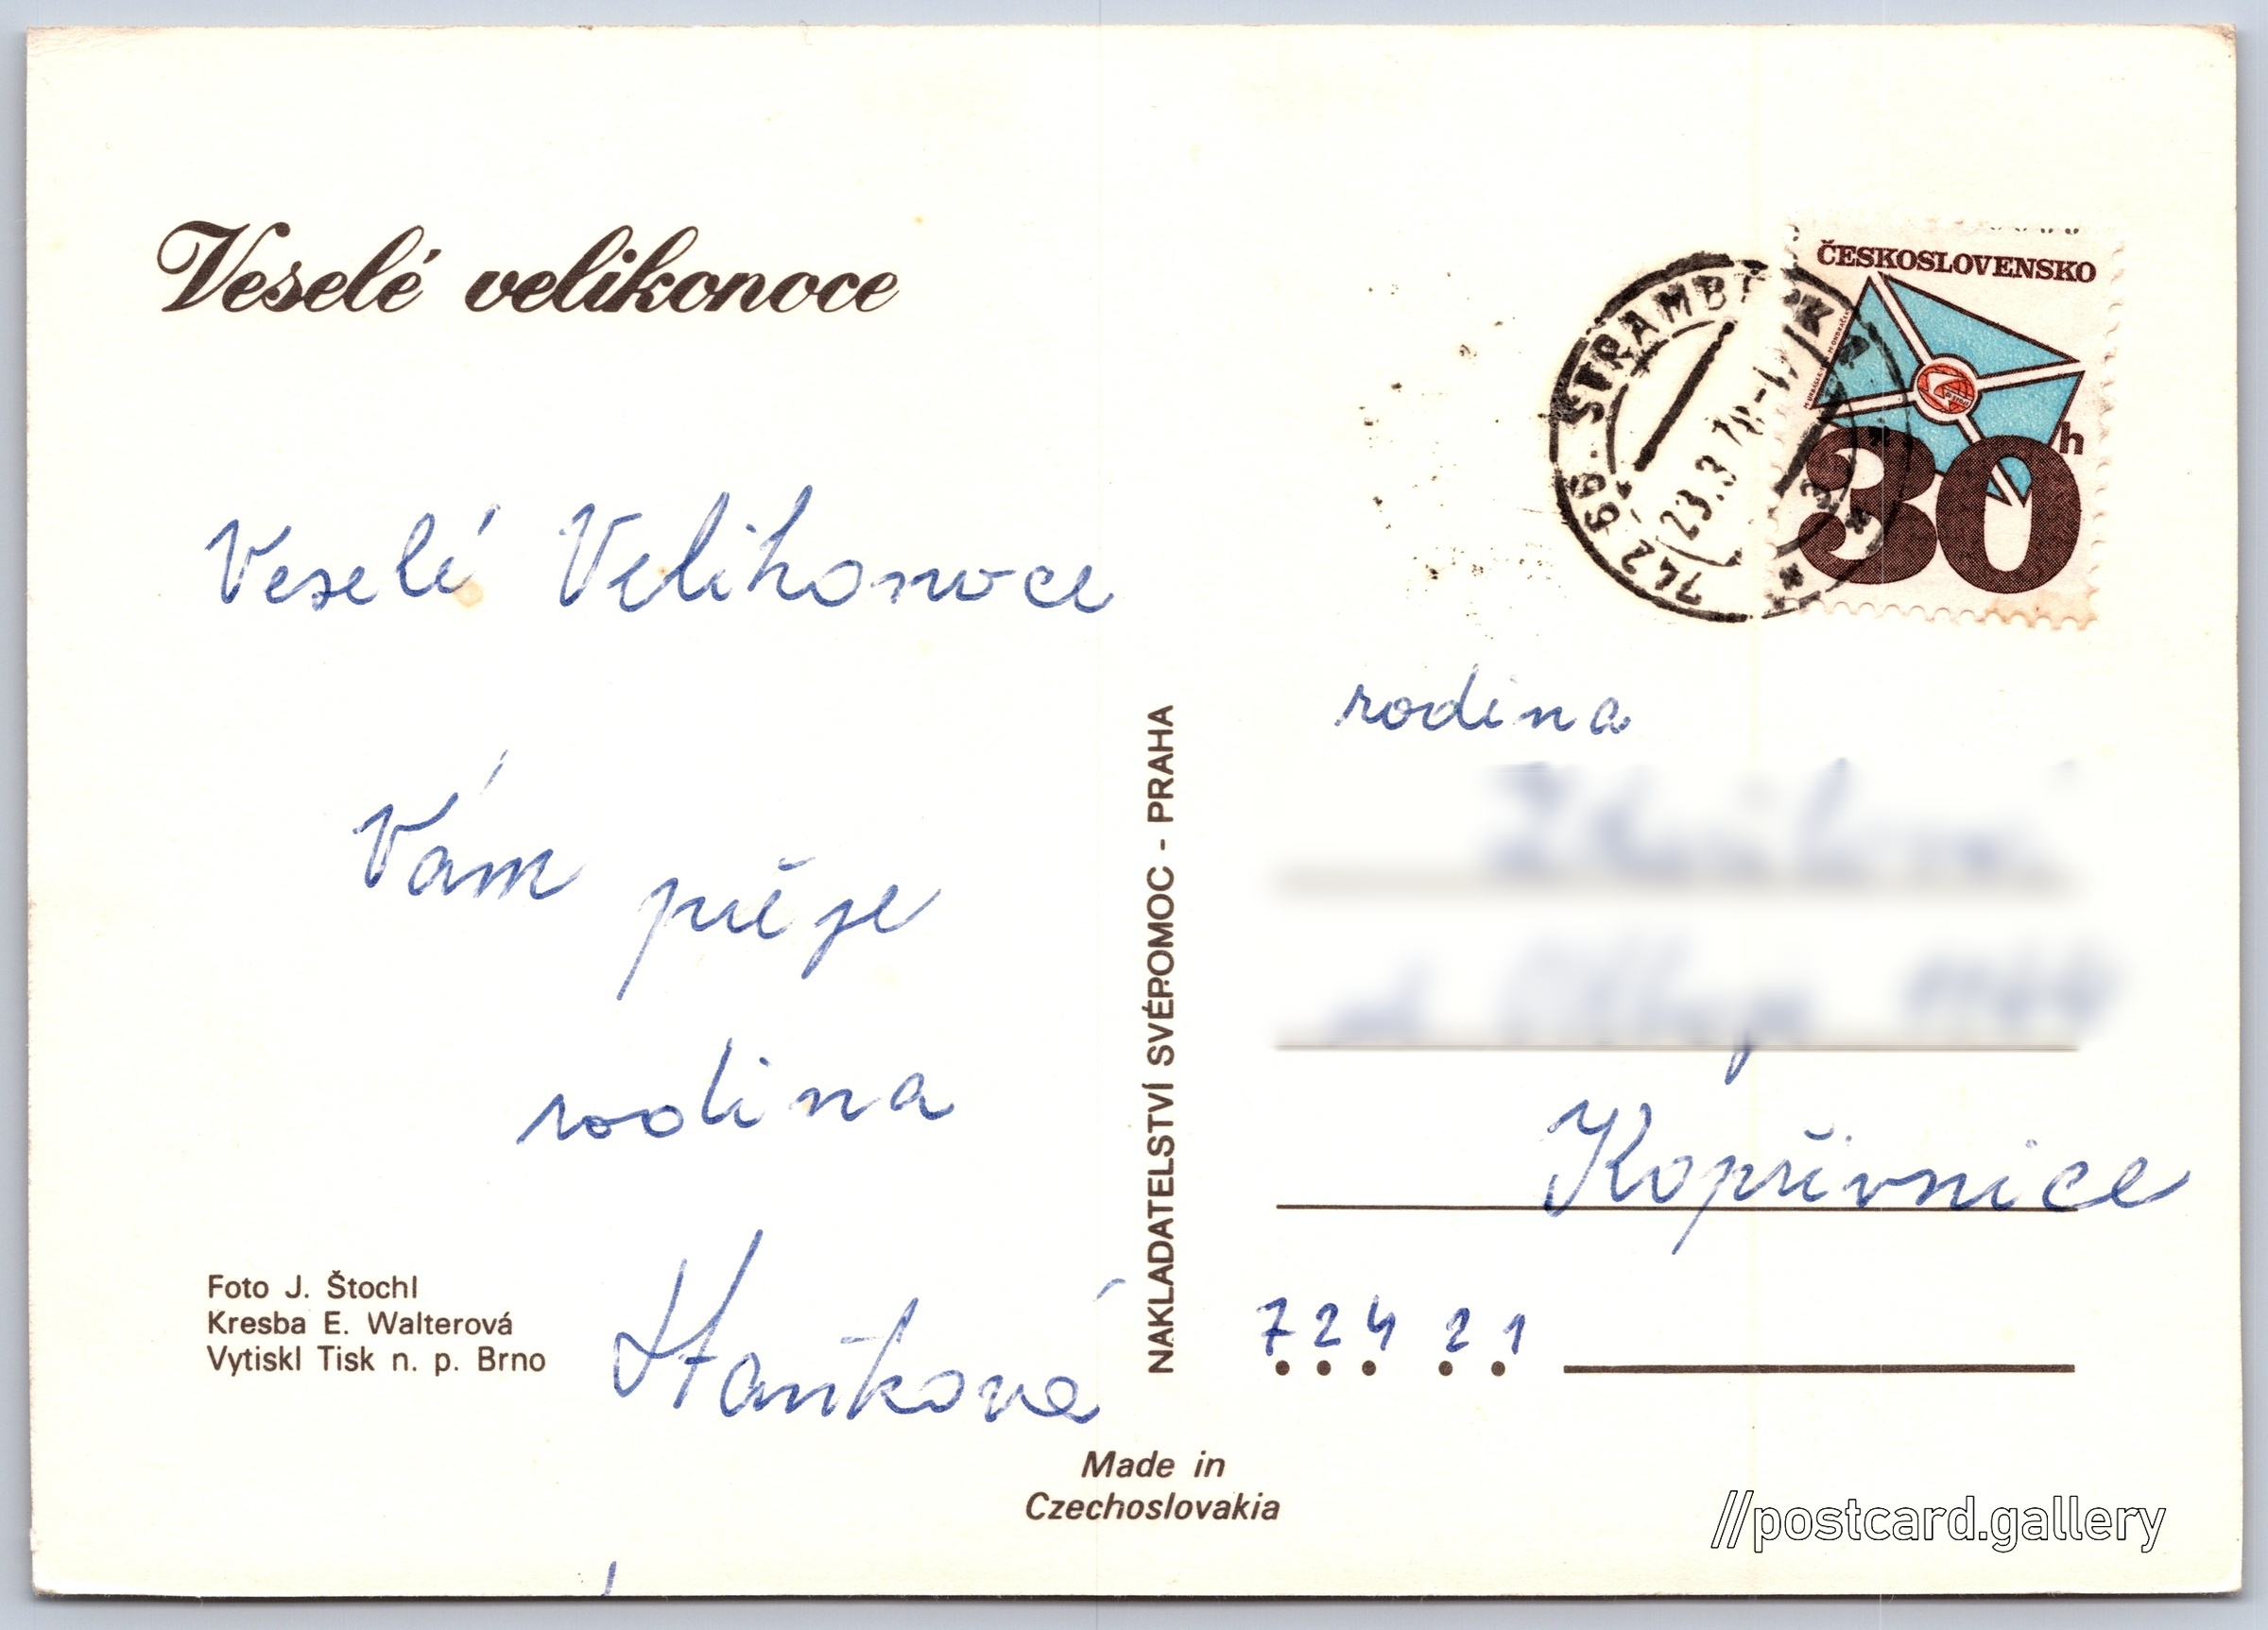 Veselé velikonoce
Veselé Velikonoce
Vám přeje
rodina
Haňková
Foto J. Štochl
Kresba E. Walterová
Vytiskl Tisk n. p. Brno
NAKLADATELSTVÍ SVÉPOMOC - PRAHA
Made in
Czechoslovakia
ČESKOSLOVENSKO
30h
742 66 ŠTRAMBERK
23.3.
rodina
Kopřivnice
724 21
//postcard.gallery